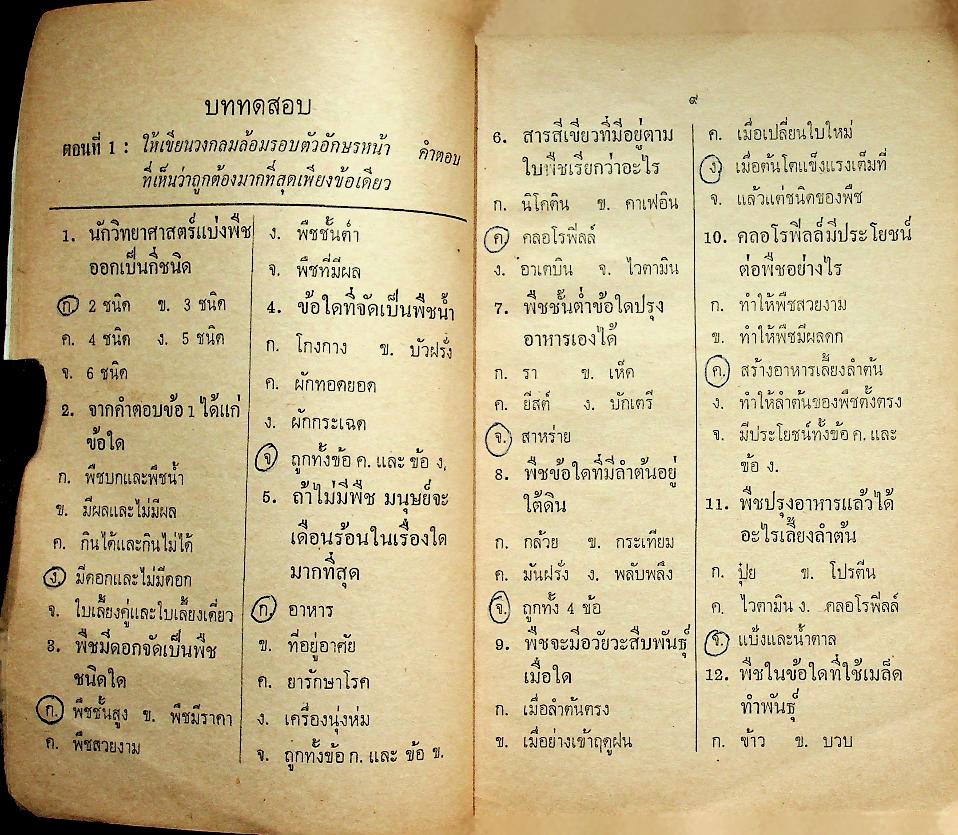 บททดสอบ
ตอนที่ 1 : ให้เขียนวงกลมล้อมรอบตัวอักษรหน้า คำตอบ
ที่เห็นว่าถูกต้องมากที่สุดเพียงข้อเดียว
1. นักวิทยาศาสตร์แบ่งพืช
ออกเป็นกี่ชนิด
ก. 2 ชนิด ข. 3 ชนิด
ค. 4 ชนิด ง. 5 ชนิด
จ. 6 ชนิด
2. จากคำตอบข้อ 1 ได้แก่
ข้อใด
ก. พืชบกและพืชน้ำ
ข. มีผลและไม่มีผล
ค. กินได้และกินไม่ได้
ง. มีดอกและไม่มีดอก
จ. ใบเลี้ยงคู่และใบเลี้ยงเดี่ยว
3. พืชมีดอกจัดเป็นพืช
ชนิดใด
ก. พืชชั้นสูง ข. พืชมีราคา
ค. พืชสวยงาม
ง. พืชชั้นต่ำ
จ. พืชที่มีผล
4. ข้อใดที่จัดเป็นพืชน้ำ
ก. โกงกาง ข. บัวฝรั่ง
ค. ผักทอดยอด
ง. ผักกระเฉด
จ ถูกทั้งข้อ ค. และ ข้อ ง.
5. ถ้าไม่มีพืช มนุษย์จะ
เดือนร้อนในเรื่องใด
มากที่สุด
ก. อาหาร
ข. ที่อยู่อาศัย
ค. ยารักษาโรค
ง. เครื่องนุ่งห่ม
จ. ถูกทั้งข้อ ก. และ ข้อ ข.
๙
6. สารสีเขียวที่มีอยู่ตาม
ใบพืชเรียกว่าอะไร
ก. นิโคติน ข. คาเฟอิน
ค คลอโรฟีลล์
ง. อาเตบิน จ. ไวตามิน
7. พืชชั้นต่ำข้อใดปรุง
อาหารเองได้
ก. รา ข. เห็ด
ค. ยีสต์ ง. บักเตรี
จ. สาหร่าย
8. พืชข้อใดที่มีลำต้นอยู่
ใต้ดิน
ก. กล้วย ข. กระเทียม
ค. มันฝรั่ง ง. พลับพลึง
จ. ถูกทั้ง 4 ข้อ
9. พืชจะมีอวัยวะสืบพันธุ์
เมื่อใด
ก. เมื่อลำต้นตรง
ข. เมื่อย่างเข้าฤดูฝน
ค. เมื่อเปลี่ยนใบใหม่
ง เมื่อต้นโตแข็งแรงเต็มที่
จ. แล้วแต่ชนิดของพืช
10. คลอโรฟีลล์มีประโยชน์
ต่อพืชอย่างไร
ก. ทำให้พืชสวยงาม
ข. ทำให้พืชมีผลดก
ค. สร้างอาหารเลี้ยงลำต้น
ง. ทำให้ลำต้นของพืชตั้งตรง
จ. มีประโยชน์ทั้งข้อ ค. และ
ข้อ ง.
11. พืชปรุงอาหารแล้วได้
อะไรเลี้ยงลำต้น
ก. ปุ๋ย ข. โปรตีน
ค. ไวตามิน ง. คลอโรฟีลล์
จ. แป้งและน้ำตาล
12. พืชในข้อใดที่ใช้เมล็ด
ทำพันธุ์
ก. ข้าว ข. บวบ